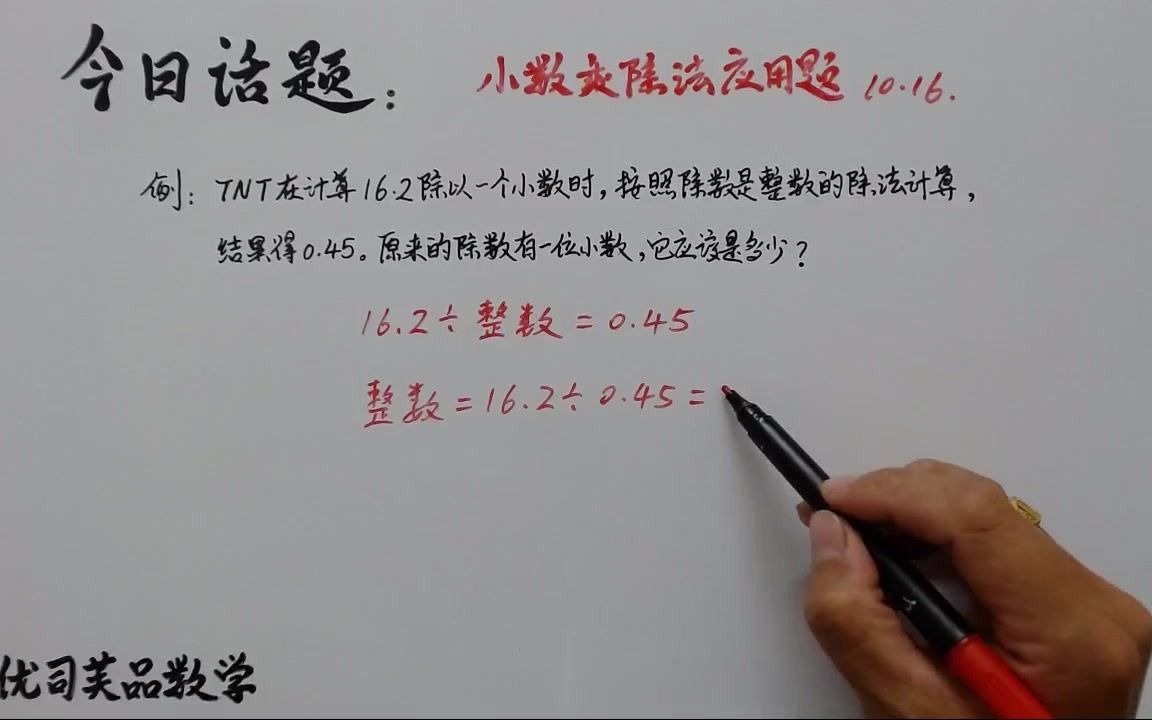 今日话题：
小数乘除法应用题 10.16.
例：TNT在计算16.2除以一个小数时，按照除数是整数的除法计算，
结果得0.45。原来的除数有一位小数，它应该是多少？
16.2÷整数=0.45
整数=16.2÷0.45=
优司芙品数学